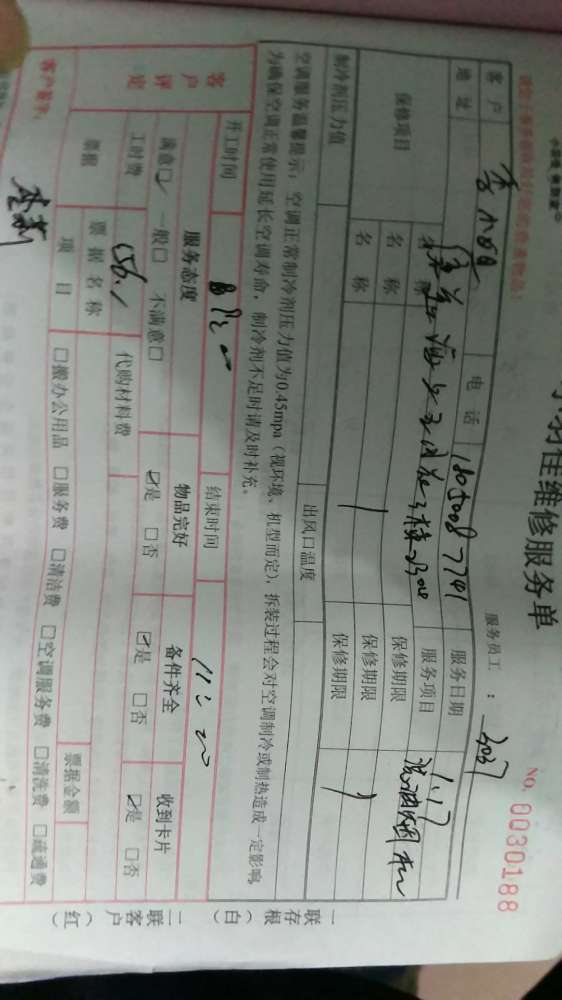 小羽佳维修服务单
NO. 0030188
服务员工：
客户 李小姐 电话 18050087741 服务日期 1.17
地址 服务项目
保修项目 名称 保修期限
名称 保修期限
名称 保修期限
制冷剂压力值 出风口温度
空调服务温馨提示：空调正常制冷剂压力值为0.45mpa（视环境、机型而定），拆装过程会对空调制冷或制热造成一定影响，
为确保空调正常使用延长空调寿命，制冷剂不足时请及时补充。
开工时间 结束时间 11:00
客户评定 服务态度 物品完好 备件齐全 收到卡片
满意☑ 一般□ 不满意□ ☑是 □否 ☑是 □否 ☑是 □否
工时费 156.1 代购材料费
票据 票据名称 票据金额
项目 □搬办公用品 □服务费 □清洁费 □空调服务费 □清洗费 □疏通费
客户签字：
一联存根（白） 二联客户（红）